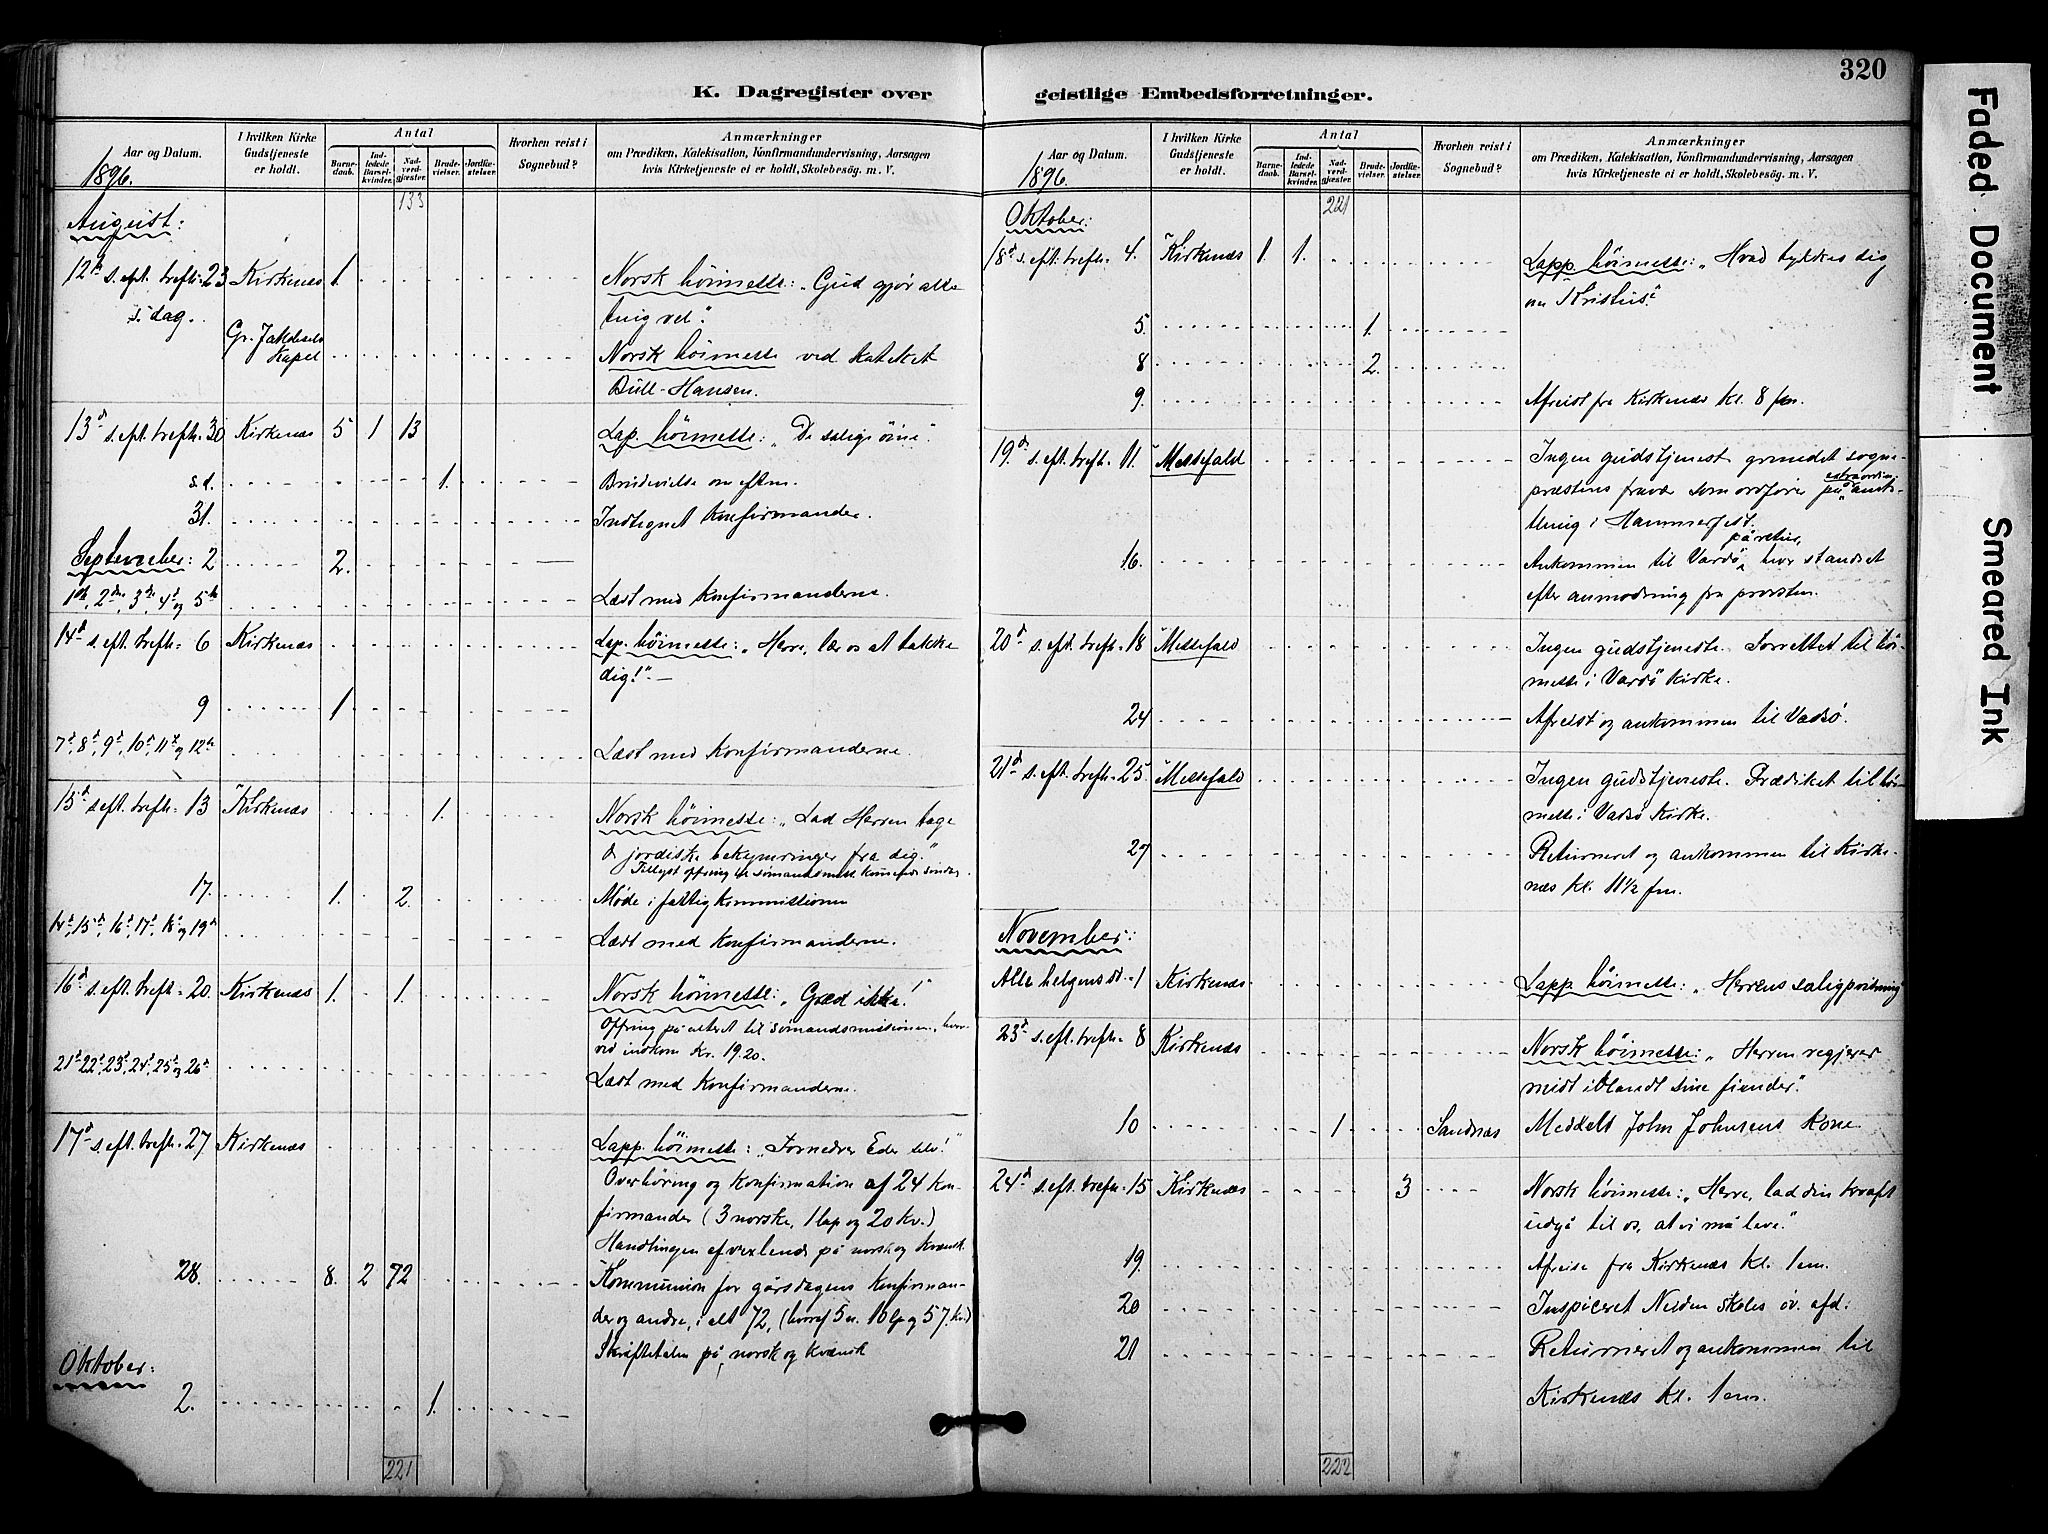 K. Dagregister over
geistlige Embedsforretninger.
320
Aar og Datum.
1896.
I hvilken Kirke Gudstjeneste er holdt.
Antal
Barnedaab.
Indledede Barselkvinder.
Nadverdgjæster.
Brudevielser.
Jordfæstelser.
Hvorhen reist i Sognebud?
Anmærkninger
om Prædiken, Katekisation, Konfirmandundervisning, Aarsagen
hvis Kirketjeneste ei er holdt, Skolebesög. m. V.
133
August:
12te s. eft. trefh. 23 Kirkenæs 1. Norsk höimesse: "Gud gjør alle
s. dag. ting vel".
Gr. Jakobselv Kapel Norsk höimesse ved kateket
Bull-Hansen.
13d s. eft. trefh. 30 Kirkenæs 5 1 13 Lap. höimesse: "De salige öine".
s.d. 1. Brudevielse om eftm.
31. Indtegnet Konfirmander.
September: 2 2.
1ste, 2den, 3die, 4d og 5te Læst med Konfirmanderne.
14d s. eft. trefh. 6 Kirkenæs Lap. höimesse: "Herre, lær os at takke
dig!" —
9 1
7d, 8d, 9d, 10d, 11te og 12te Læst med Konfirmanderne.
15d s. eft. trefh. 13 Kirkenæs 1. Norsk höimesse: "Lad Herren tage
de jordiske bekymringer fra dig."
Tillyst offring til sömandsmiss. förstk. söndag.
17. 1. 2. Møde i fattigkommissionen
14d, 15d, 16d, 17d, 18d og 19d Læst med Konfirmanderne.
16d s. eft. trefh. 20. Kirkenæs 1. 1. Norsk höimesse: "Græd ikke!"
Offring på alteret til sömandsmissionen, hvor-
ved indkom Kr. 19.20.
21d 22d, 23d, 24d, 25d og 26d Læst med Konfirmanderne.
17d s. eft. trefh. 27 Kirkenæs Lapp. höimesse: "Fornedrer Eder selv!"
Overhöring og Konfirmation af 24 kon-
firmander (3 norske, 1 lap og 20 kv.)
Handlingen afvexlende på norsk og kvænsk.
28. 8. 2 72 Kommunion for gårsdagens Konfirman-
der og andre, i alt 72, (hvoraf 5 n. 10 lp og 57 kv.)
Skriftetalen på norsk og kvænsk
Oktober:
2. 1.
221
Aar og Datum.
1896.
I hvilken Kirke Gudstjeneste er holdt.
Antal
Barnedaab.
Indledede Barselkvinder.
Nadverdgjæster.
Brudevielser.
Jordfæstelser.
Hvorhen reist i Sognebud?
Anmærkninger
om Prædiken, Katekisation, Konfirmandundervisning, Aarsagen
hvis Kirketjeneste ei er holdt, Skolebesög. m. V.
221
Oktober:
18d s. eft. trefh. 4. Kirkenæs 1. 1. Lapp. höimesse: "Hvad tykkes dig
om Kristus?"
5. 1.
8 2.
9. Afreist fra Kirkenæs kl. 8 fm.
19d s. eft. trefh. 11. Messefald Ingen gudstjeneste grundet sogne-
præstens fravær som ordfører på extraordin. amts-
thing i Hammerfest.
16. Ankommen til Vardö på retur, hvor standset
efter anmodning fra provsten.
20d s. eft. trefh. 18 Messefald Ingen gudstjeneste. Forrettet til höi-
messe i Vardö Kirke.
24 Afreist og ankommen til Vadsö.
21d s. eft. trefh. 25. Messefald Ingen gudstjeneste. Prædiket til höi-
messe i Vadsö Kirke.
27 Returneret og ankommen til Kirke-
næs kl. 11 1/2 fm.
November:
Alle helgens d. 1 Kirkenæs Lapp. höimesse: "Herrens saligprisning"
23d s. eft. trefh. 8 Kirkenæs Norsk höimesse: "Herren regjerer
midt iblandt sine fiender."
10 1 Sandnæs Meddelt John Johnsens Kone
24d s. eft. trefh. 15 Kirkenæs 3 Norsk höimesse: "Herre, lad din kraft
udgå til os, at vi må leve."
19. Afreise fra Kirkenæs kl. 1 em.
20 Inspiceret Neiden skoles öv. afd.
21 Returneret og ankommen til
Kirkenæs kl. 1 em.
222
Faded Document
Smeared Ink